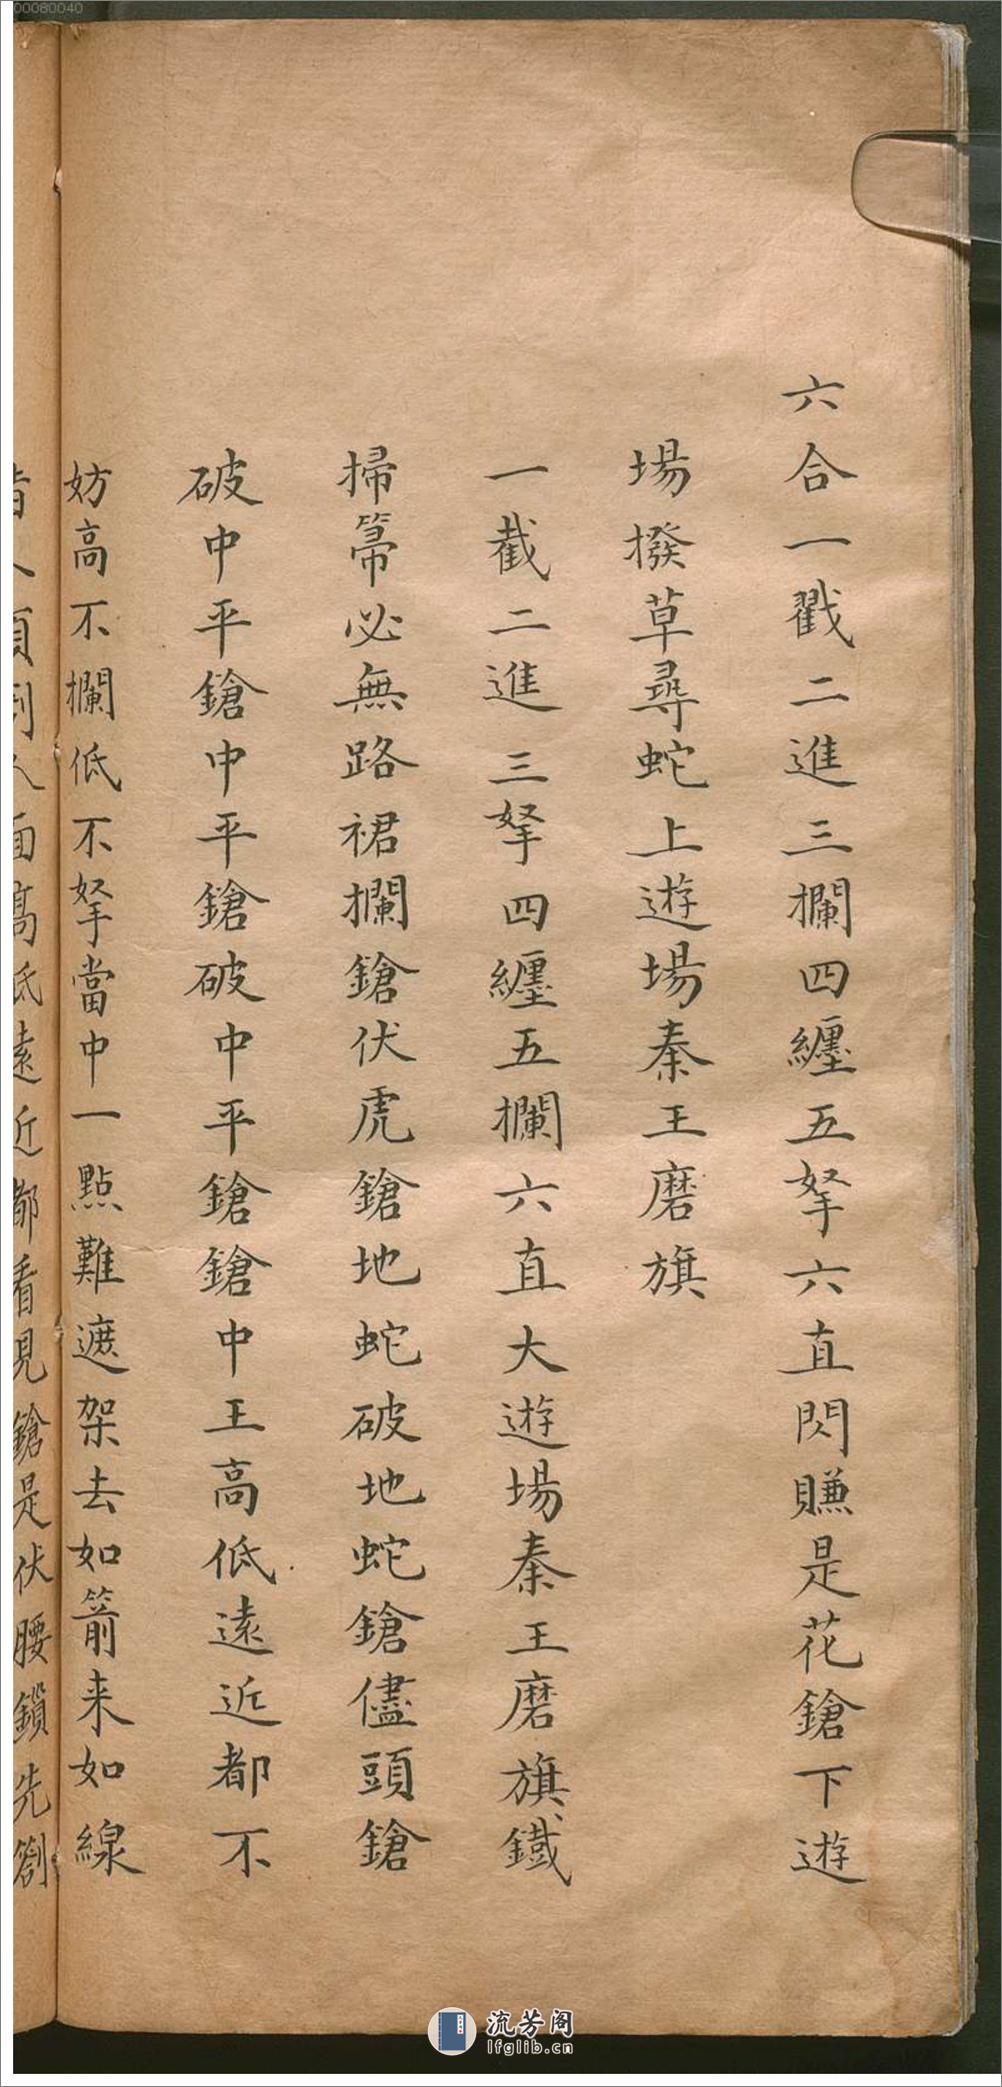 00080040
六合一戳二進三欄四纏五拏六直閃賺是花鎗下遊
場撥草尋蛇上遊場秦王磨旗
一截二進三拏四纏五欄六直大遊場秦王磨旗鐵
掃箒必無路裙欄鎗伏虎鎗地蛇破地蛇鎗儘頭鎗
破中平鎗中平鎗破中平鎗鎗中王高低遠近都不
妨高不欄低不拏當中一點難遮架去如箭来如線
面高低遠近都看見鎗是伏腰鎖先劄
流芳阁
lfglib.cn